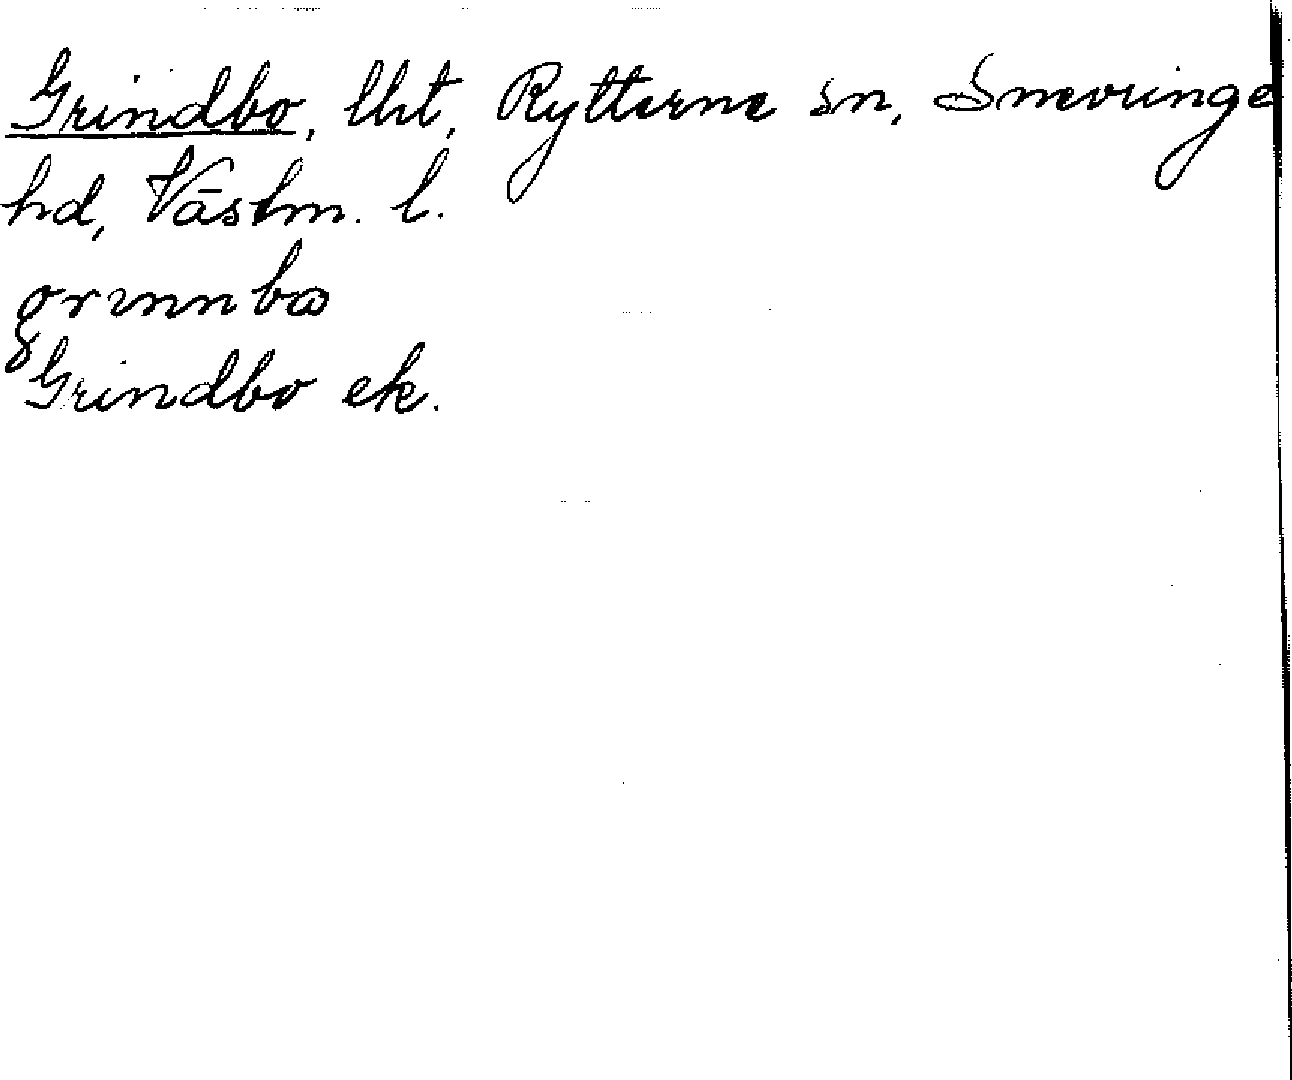 Grindbo, lht, Rytterne sn, Snevringe
hd, Västm. l.
grınnbω
Grindbo ek.